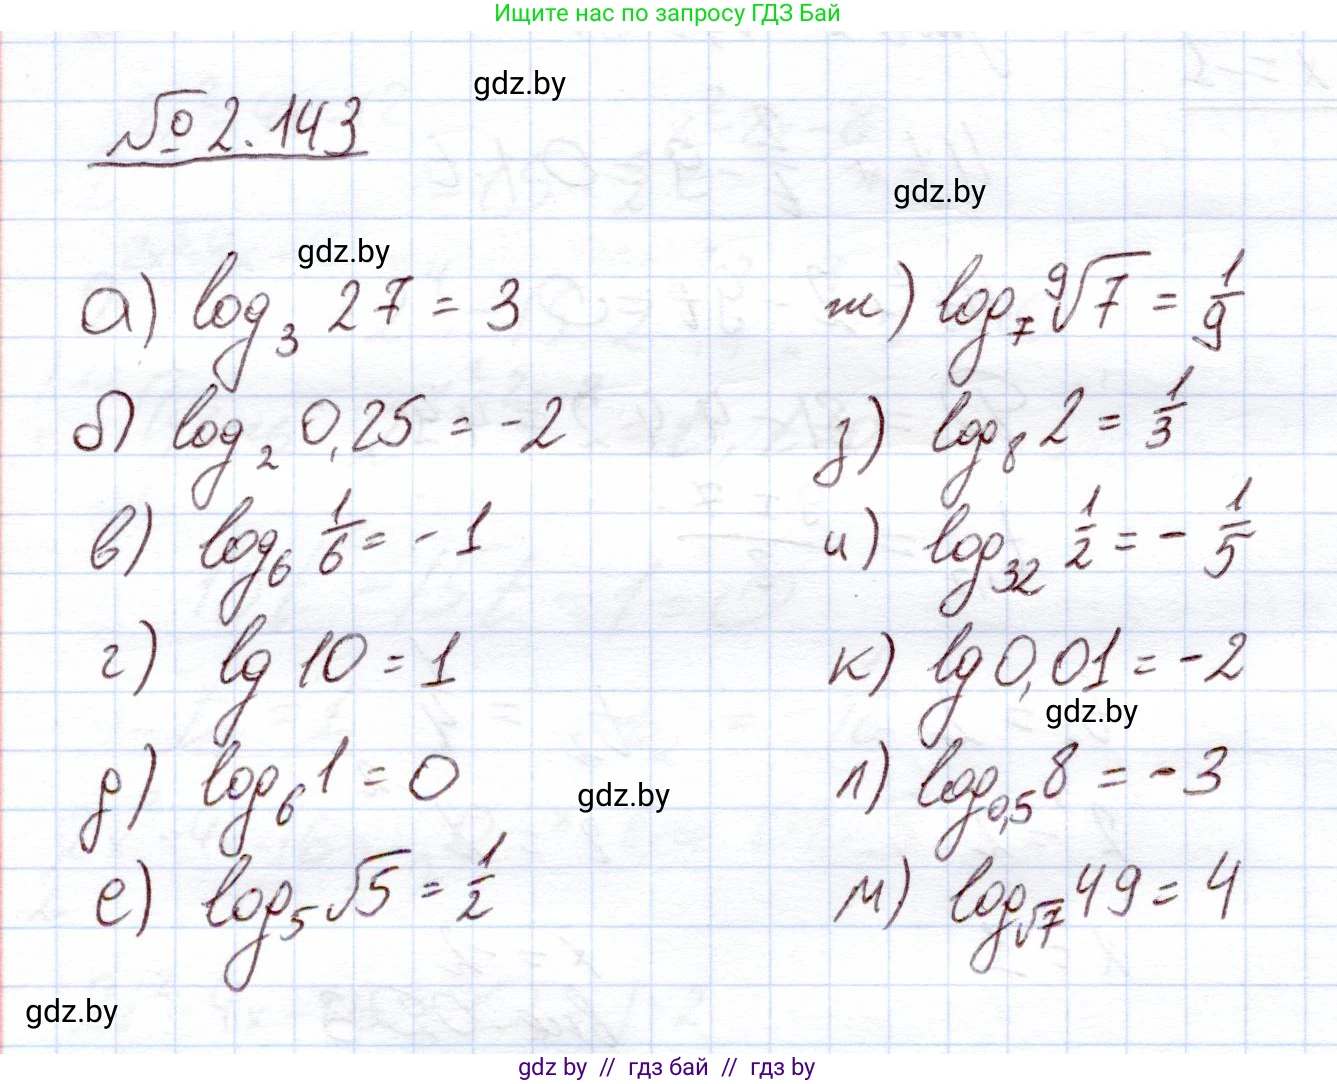 Ищите нас по запросу ГДЗ Бай
gdz.by
№ 2.143
gdz.by
gdz.by
а) log₃ 27 = 3
б) log₂ 0,25 = -2
в) log₆ 1/6 = -1
г) lg 10 = 1
д) log₆ 1 = 0
е) log₅ √5 = 1/2
ж) log₇ ⁹√7 = 1/9
з) log₈ 2 = 1/3
и) log₃₂ 1/2 = - 1/5
к) lg 0,01 = -2
gdz.by
л) log₀,₅ 8 = -3
gdz.by
м) log_√7 49 = 4
gdz.by
gdz by // гдз бай // gdz by